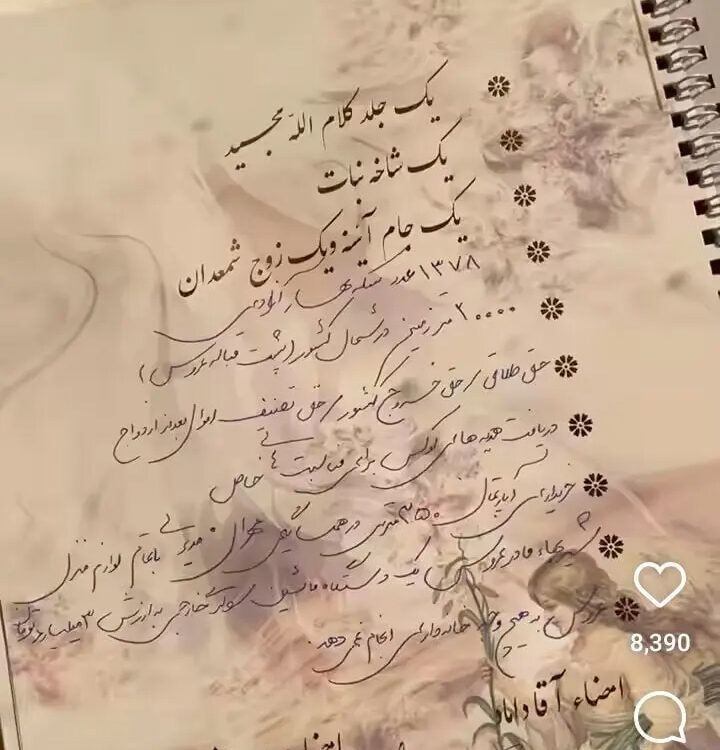 یک جلد کلام الله مجید
یک شاخه نبات
یک جام آئینه ویک زوج شمعدان
۱۳۷۸ عدد سکه بهار آزادی
۲۰۰۰۰ متر زمین در شمال کشور (پشت قباله عروس)
حق طلاق / حق خروج کشور / حق تصنیف اموال بعد از ازدواج
دریافت هدیه های لوکس برای مناسبت های خاص
خریداری آپارتمان ۳۵۰ متری در همسایگی با تمام لوازم منزل
شیربهاء مادر عروس یک دستگاه ماشین خارجی به ارزش ۳ میلیارد تومان
عروس به هیچ وجه خانه داری انجام نمی دهد.
امضاء آقا داماد
8,390